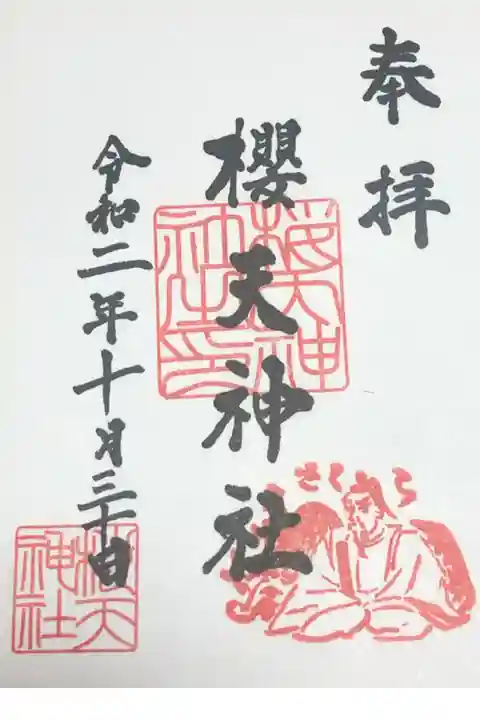 奉拝
櫻天神社
櫻天神社印
さくら
令和二年十月三十日
櫻天神社